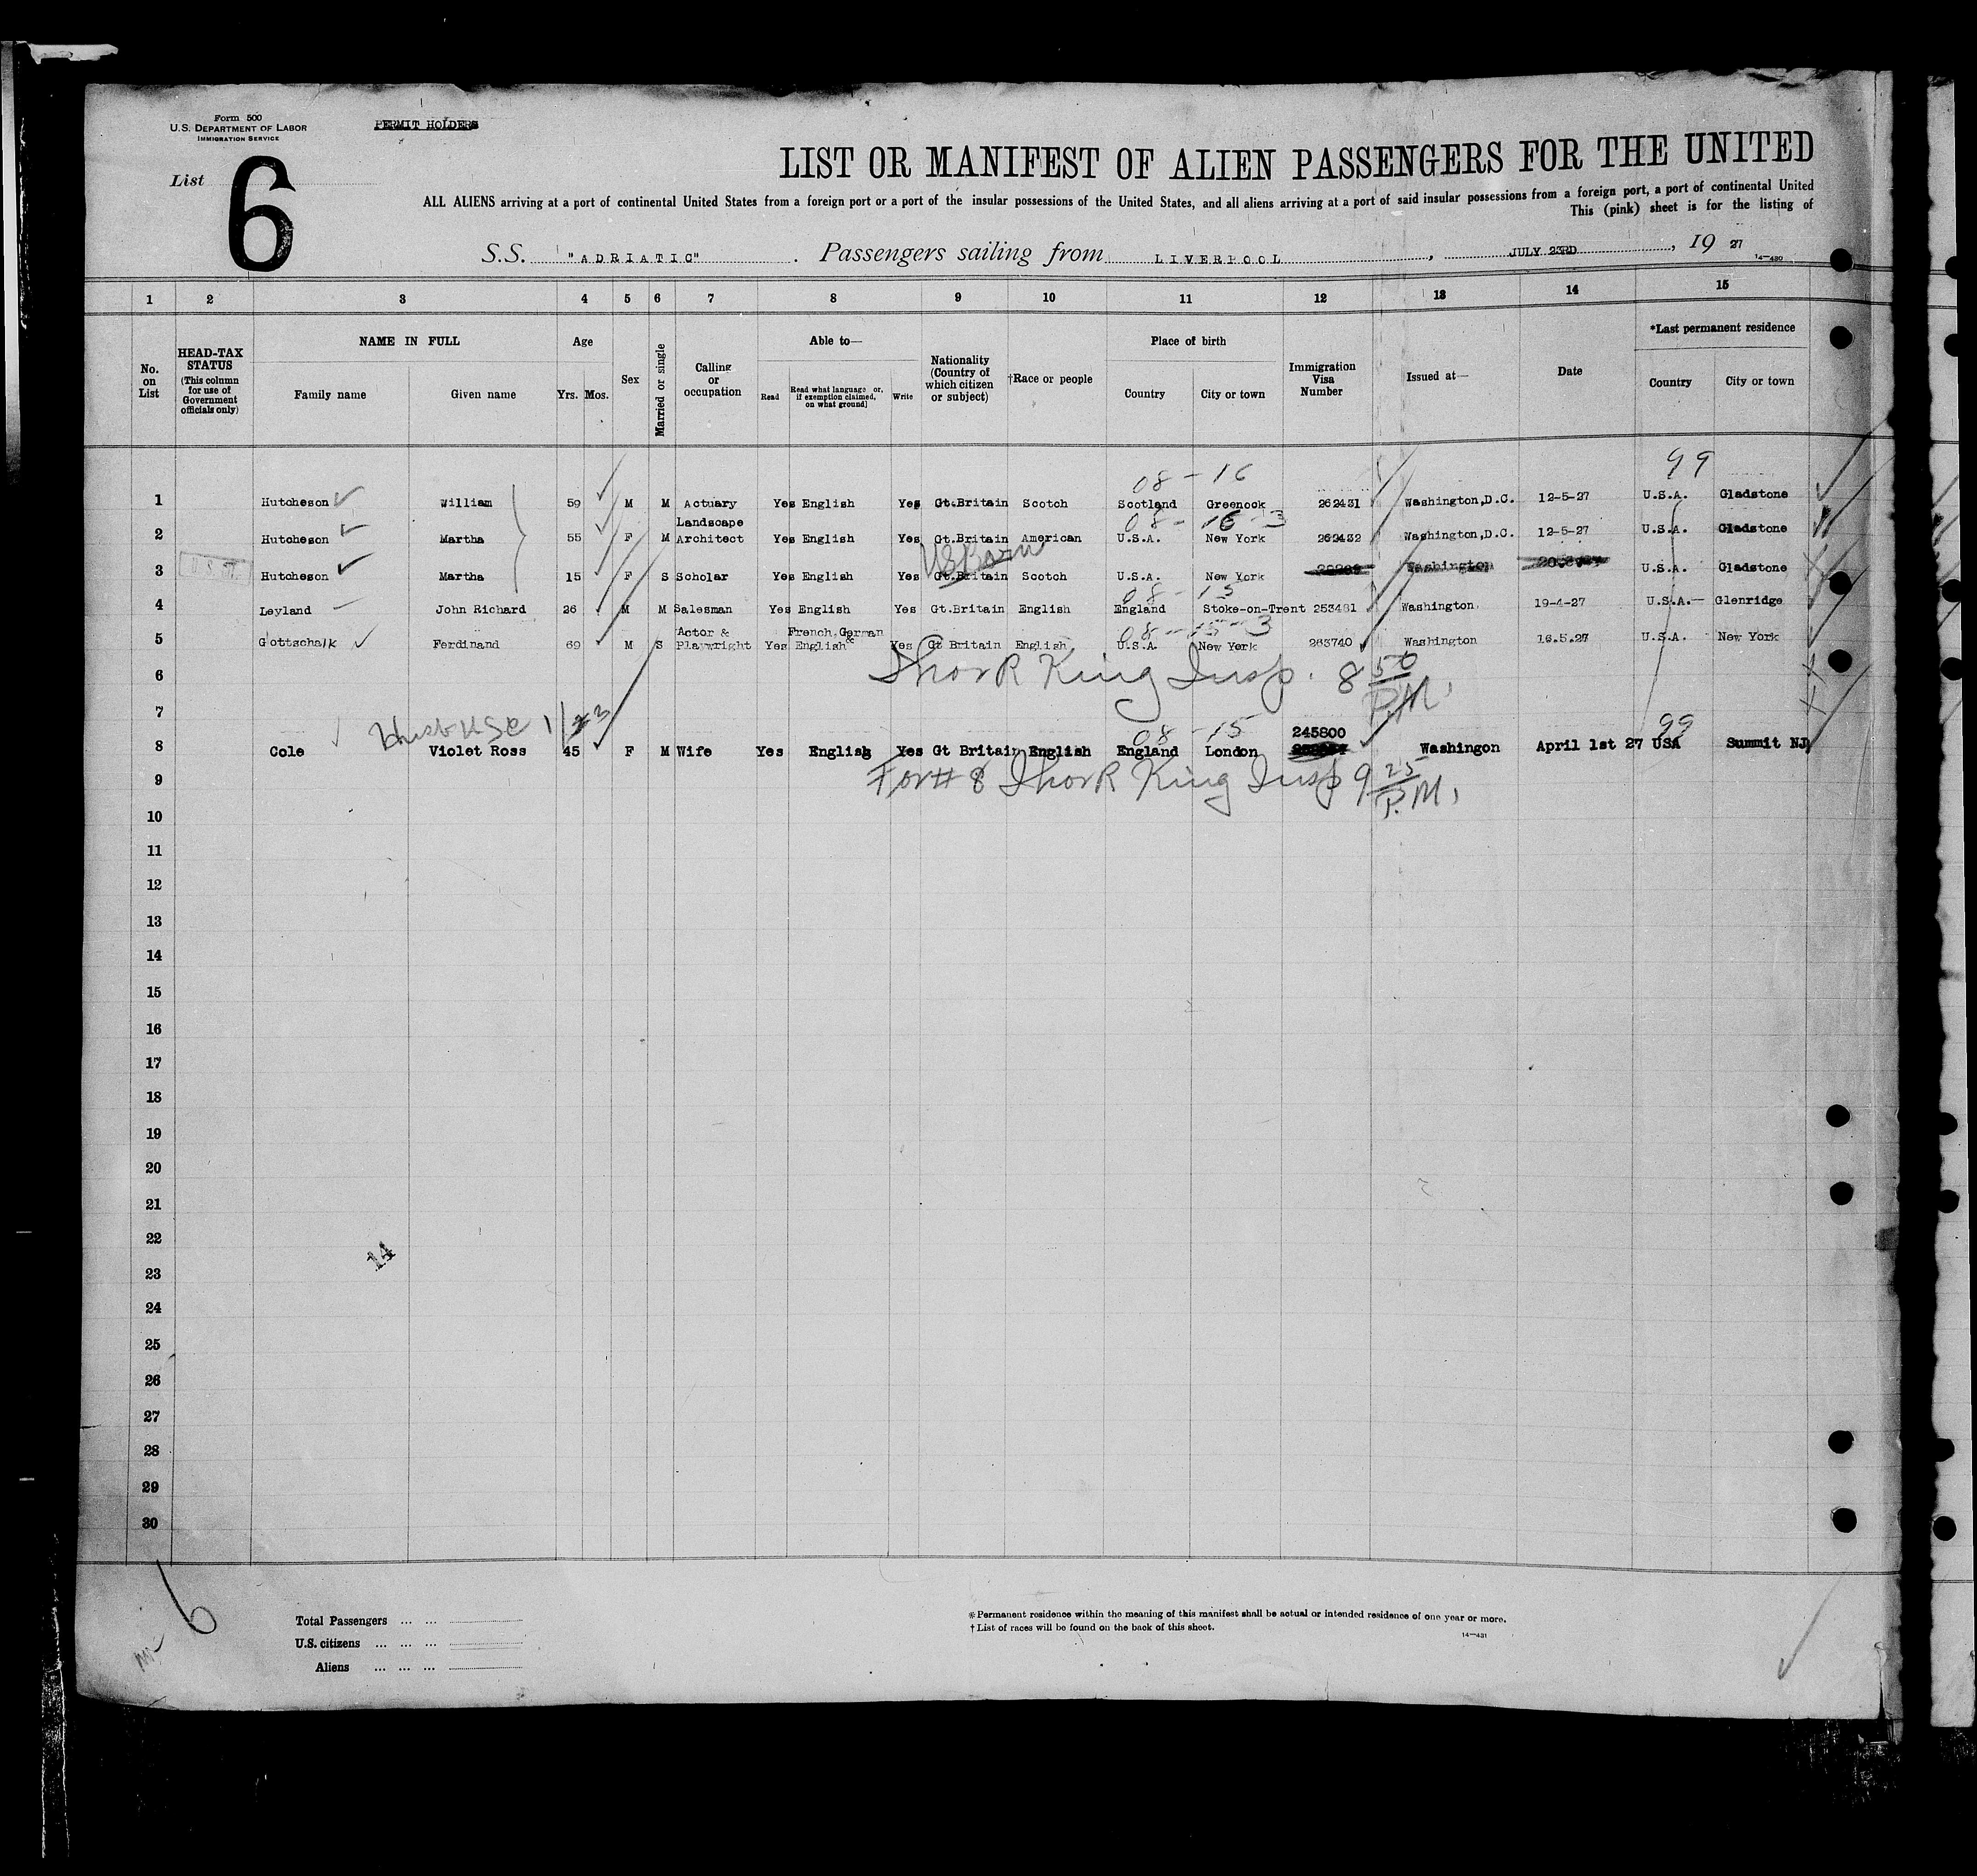 Form 500
U.S. DEPARTMENT OF LABOR
IMMIGRATION SERVICE
PERMIT HOLDERS
List 6
LIST OR MANIFEST OF ALIEN PASSENGERS FOR THE UNITED
ALL ALIENS arriving at a port of continental United States from a foreign port or a port of the insular possessions of the United States, and all aliens arriving at a port of said insular possessions from a foreign port, a port of continental United
This (pink) sheet is for the listing of
S.S. "ADRIATIC" . Passengers sailing from LIVERPOOL , JULY 23RD , 19 27
14—430
1 2 3 4 5 6 7 8 9 10 11 12 13 14 15
No. on List
HEAD-TAX STATUS (This column for use of Government officials only)
NAME IN FULL
Family name Given name
Age
Yrs. Mos.
Sex
Married or single
Calling or occupation
Able to—
Read Read what language or, if exemption claimed, on what ground] Write
Nationality (Country of which citizen or subject)
†Race or people
Place of birth
Country City or town
Immigration Visa Number
Issued at—
Date
*Last permanent residence
Country City or town
08-16 99
1 Hutcheson William 59 M M Actuary Yes English Yes Gt.Britain Scotch Scotland Greenock 262431 Washington,D.C. 12-5-27 U.S.A. Gladstone
08-16-3
2 Hutcheson Martha 55 F M Landscape Architect Yes English Yes Gt.Britain American U.S.A. New York 262432 Washington,D.C. 12-5-27 U.S.A. Gladstone
US Born
3 Hutcheson Martha 15 F S Scholar Yes English Yes Gt.Britain Scotch U.S.A. New York Washington U.S.A. Gladstone
08-15
4 Leyland John Richard 26 M M Salesman Yes English Yes Gt.Britain English England Stoke-on-Trent 253481 Washington 19-4-27 U.S.A. Glenridge
08-15-3
5 Gottschalk Ferdinand 69 M S Actor & Playwright Yes French,German & English Yes Gt Britain English U.S.A. New York 263740 Washington 16.5.27 U.S.A. New York
6 Thor R King Insp. 8 50 P.M.
7
08-15 99
8 Cole Violet Ross 45 F M Wife Yes English Yes Gt Britain English England London 245800 Washingon April 1st 27 USA Summit NJ
9 For # 8 Thor R King Insp 9 25 P.M.
10
11
12
13
14
15
16
17
18
19
20
21
22
14
23
24
25
26
27
28
29
30
6
Total Passengers ... ...
U.S. citizens ... ... ...
Aliens ... ... ...
* Permanent residence within the meaning of this manifest shall be actual or intended residence of one year or more.
† List of races will be found on the back of this sheet.
14—431